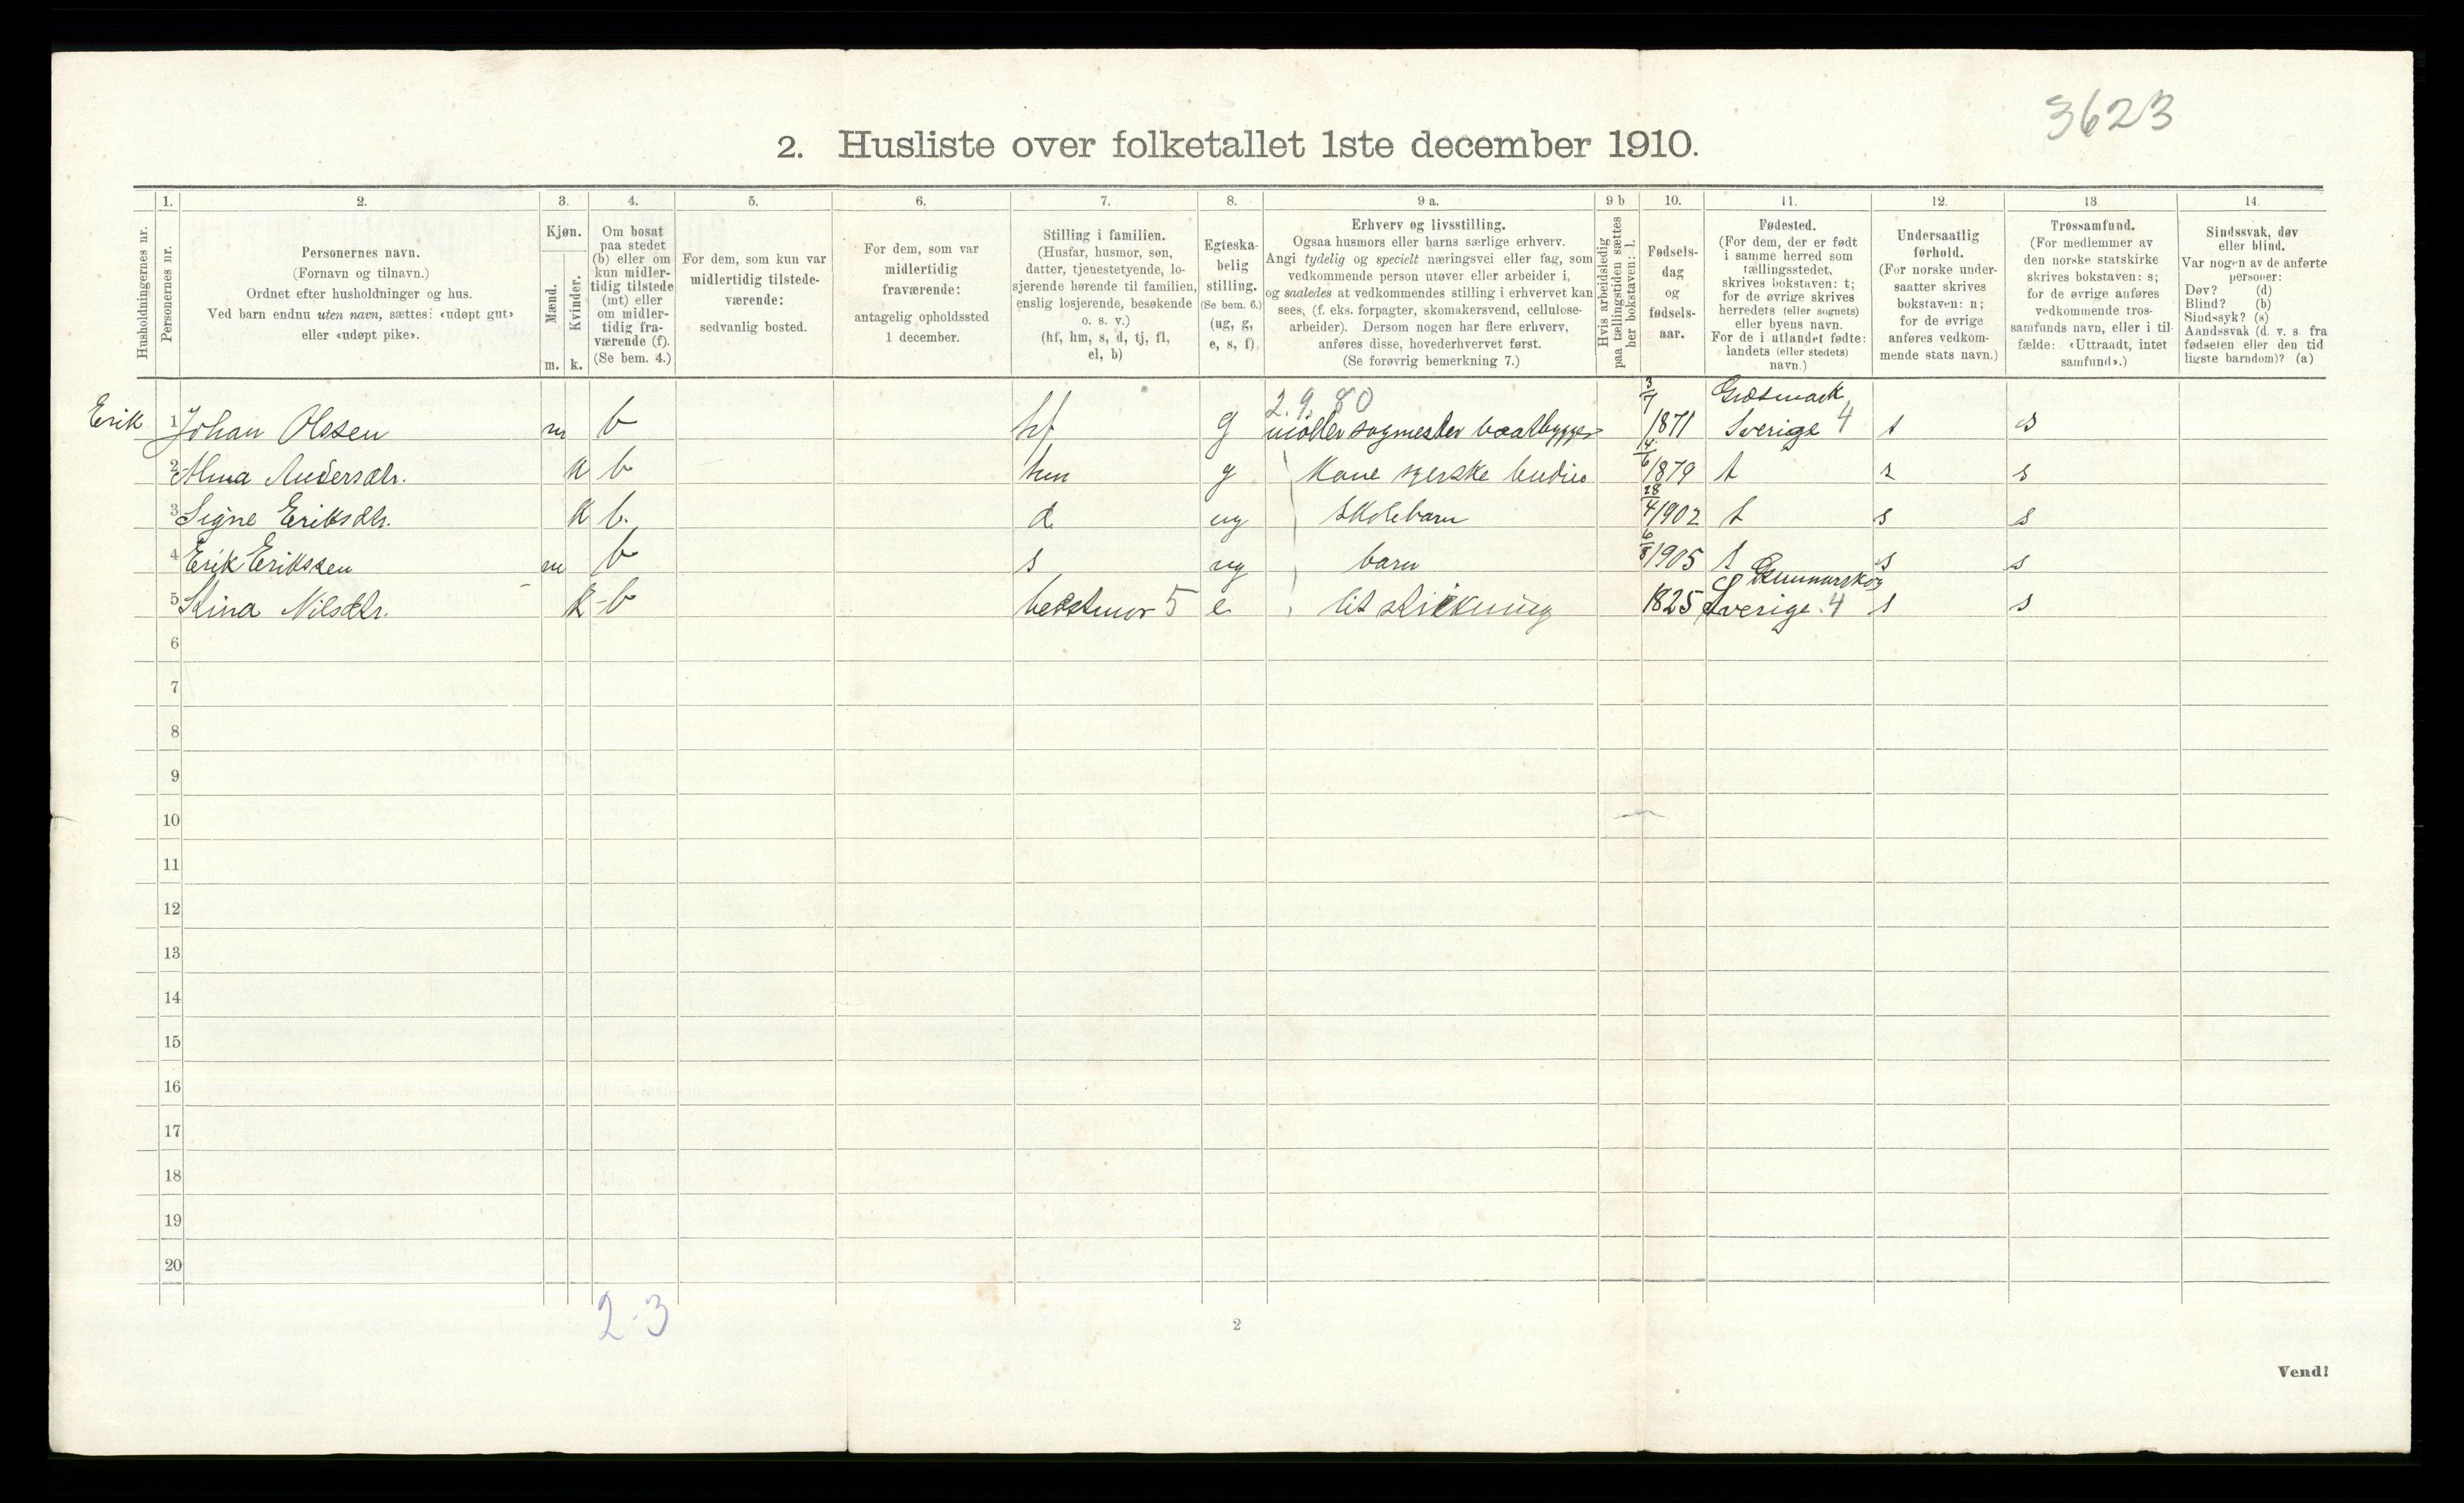 3623
2. Husliste over folketallet 1ste december 1910.
Husholdningernes nr.
1.
Personernes nr.
2.
Personernes navn.
(Fornavn og tilnavn.)
Ordnet efter husholdninger og hus.
Ved barn endnu uten navn, sættes: «udøpt gut»
eller «udøpt pike».
3.
Kjøn.
Mænd.
m.
Kvinder.
k.
4.
Om bosat
paa stedet
(b) eller om
kun midler-
tidig tilstede
(mt) eller
om midler-
tidig fra-
værende (f).
(Se bem. 4.)
5.
For dem, som kun var
midlertidig tilstede-
værende:
sedvanlig bosted.
6.
For dem, som var
midlertidig
fraværende:
antagelig opholdssted
1 december.
7.
Stilling i familien.
(Husfar, husmor, søn,
datter, tjenestetyende, lo-
sjerende hørende til familien,
enslig losjerende, besøkende
o. s. v.)
(hf, hm, s, d, tj, fl,
el, b)
8.
Egteska-
belig
stilling.
(Se bem. 6.)
(ug, g,
e, s, f)
9 a.
Erhverv og livsstilling.
Ogsaa husmors eller barns særlige erhverv.
Angi tydelig og specielt næringsvei eller fag, som
vedkommende person utøver eller arbeider i,
og saaledes at vedkommendes stilling i erhvervet kan
sees, (f. eks. forpagter, skomakersvend, cellulose-
arbeider). Dersom nogen har flere erhverv,
anføres disse, hovederhvervet først.
(Se forøvrig bemerkning 7.)
9 b
Hvis arbeidsledig
paa tællingstiden sættes
her bokstaven: l.
10.
Fødsels-
dag
og
fødsels-
aar.
11.
Fødested.
(For dem, der er født
i samme herred som
tællingsstedet,
skrives bokstaven: t;
for de øvrige skrives
herredets (eller sognets)
eller byens navn.
For de i utlandet fødte:
landets (eller stedets)
navn.)
12.
Undersaatlig
forhold.
(For norske under-
saatter skrives
bokstaven: n;
for de øvrige
anføres vedkom-
mende stats navn.)
13
Trossamfund.
(For medlemmer av
den norske statskirke
skrives bokstaven: s;
for de øvrige anføres
vedkommende tros-
samfunds navn, eller i til-
fælde: «Uttraadt, intet
samfund».)
14
Sindssvak, døv
eller blind.
Var nogen av de anførte
personer:
Døv? (d)
Blind? (b)
Sindssyk? (s)
Aandssvak (d. v. s. fra
fødselen eller den tid
ligste barndom)? (a)
2.9.80 3/7 Græsmark
Erik 1 Johan Olssen m b hf g møller sagmester baatbygger 1871 Sverige 4 s s
2 Alma Andersdtr. k b hm g Kone 14/6 1879 t s
3 Signe Eriksdtr. k b. d ug skolebarn 28/4 1902 t s s
4 Erik Erikssen m b s ug barn 6/8 1905 t s s
Gunnarskog
5 Stina Nilsdtr. k b bedstmor 5 e lit strikning 1825 Sverige. 4 s s
6
7
8
9
10
11
12
13
14
15
16
17
18
19
20
2-3
2
Vend!